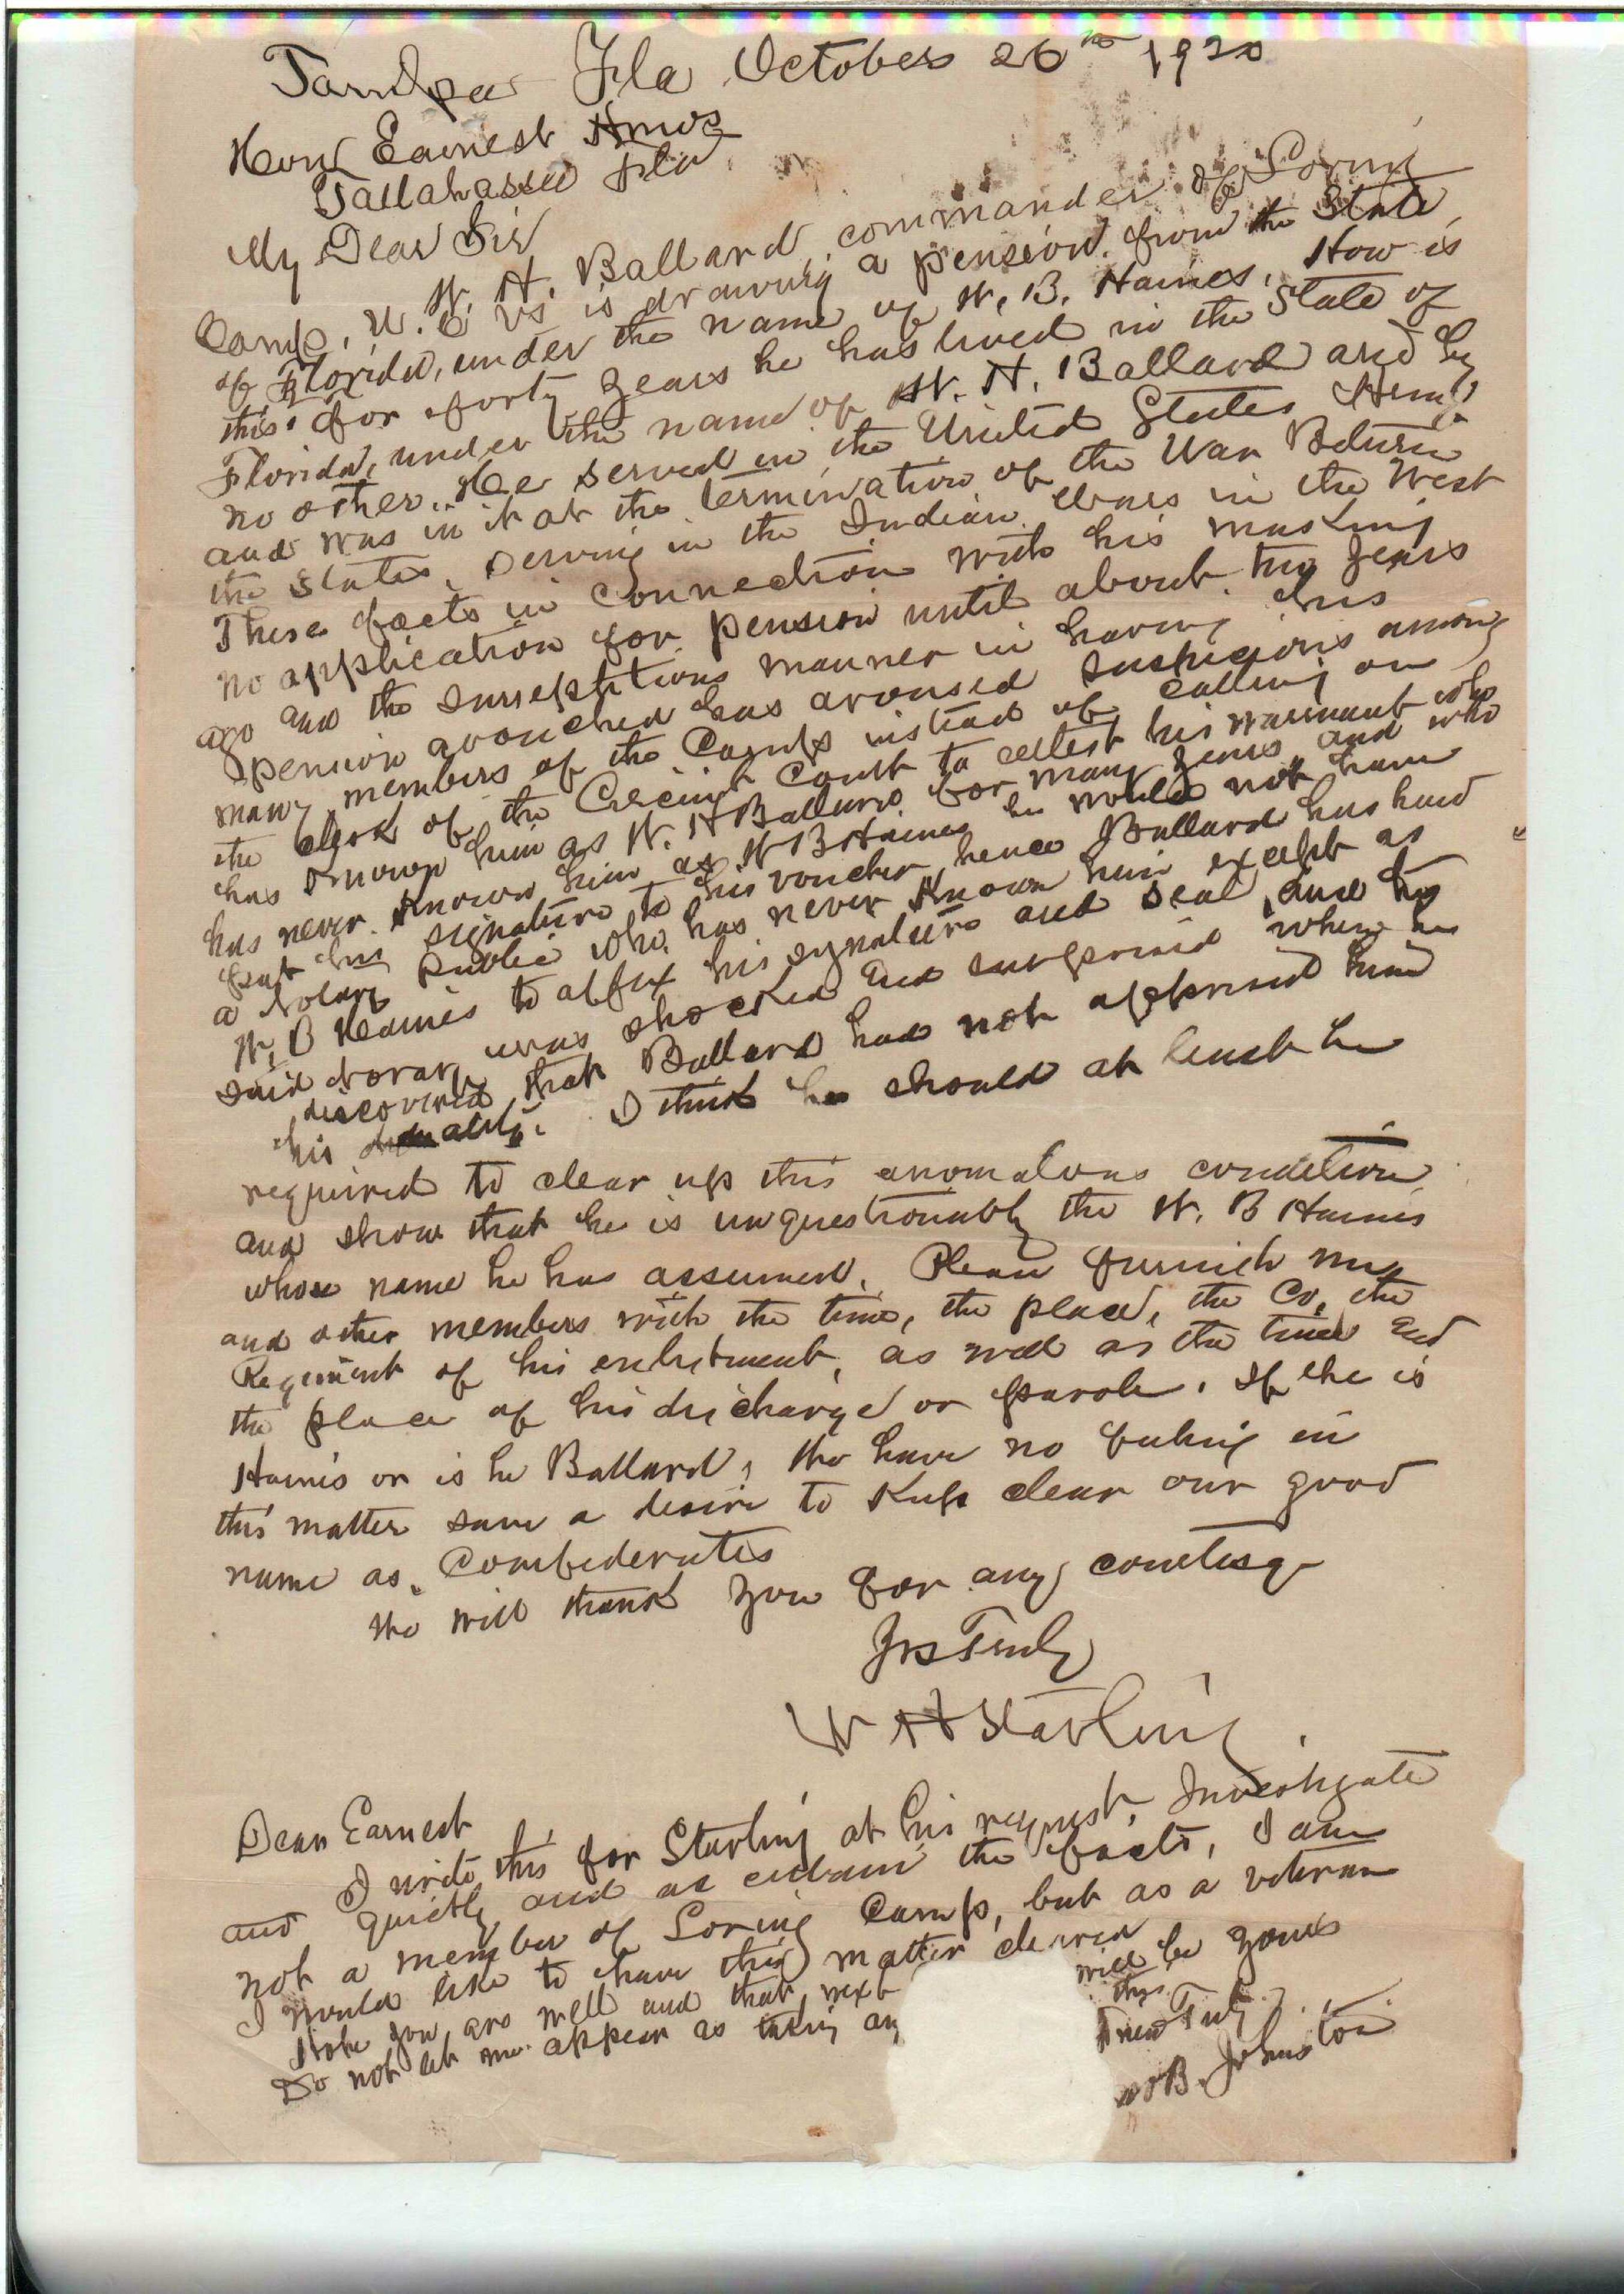 Tampa Fla October 26th 1920
Hon Earnest Amos
Tallahassee Fla
My Dear Sir
W. H. Ballard, commander of Loring
Camp, U. C Vs is drawing a pension from the State
of Florida, under the name of W. B. Haines. How is
this. for forty years he has lived in the State of
Florida, under the name of W. H. Ballard and by
no other. He served in the United States Army
and was in it at the termination of the War Between
the States, serving in the Indian Wars in the West
These facts in connection with his making
no application for pension until about two years
ago and the surreptitious manner in having his
pension avouched has aroused suspicions among
many members of the Camp instead of calling on
the clerk of the Circuit Court to attest his warrant who
has known him as W. H Ballard for many years and who
has never known him as W B Haines he would not have
put his signature to his voucher hence Ballard has had
a Notary public who has never known him except as
W, B Haines to affix his signature and seal, and the
said Notary was shocked and surprised when he
discovered that Ballard had not apprised him
his duality. I think he should at least be
required to clear up this anomalous condition
and show that he is unquestionably the W. B Haines
whose name he has assumed. Please furnish me
and other members with the time, the place, the Co, the
Regiment of his enlistment, as well as the time and
the place of his discharge or parole. If he is
Haines or is he Ballard, We have no feeling in
this matter save a desire to keep clear our good
name as Confederates
We will thank you for any courtesy
Yrs Truly
W H Starling
Dear Earnest
I write this for Starling at his request, Investigate
and quietly and as certain the facts, I am
not a member of Loring Camp, but as a veteran
I would like to have this matter cleared
Hope you are well and that next will be yours
Do not let me appear as taking any this.
Trew Tuly
W B. Johnston